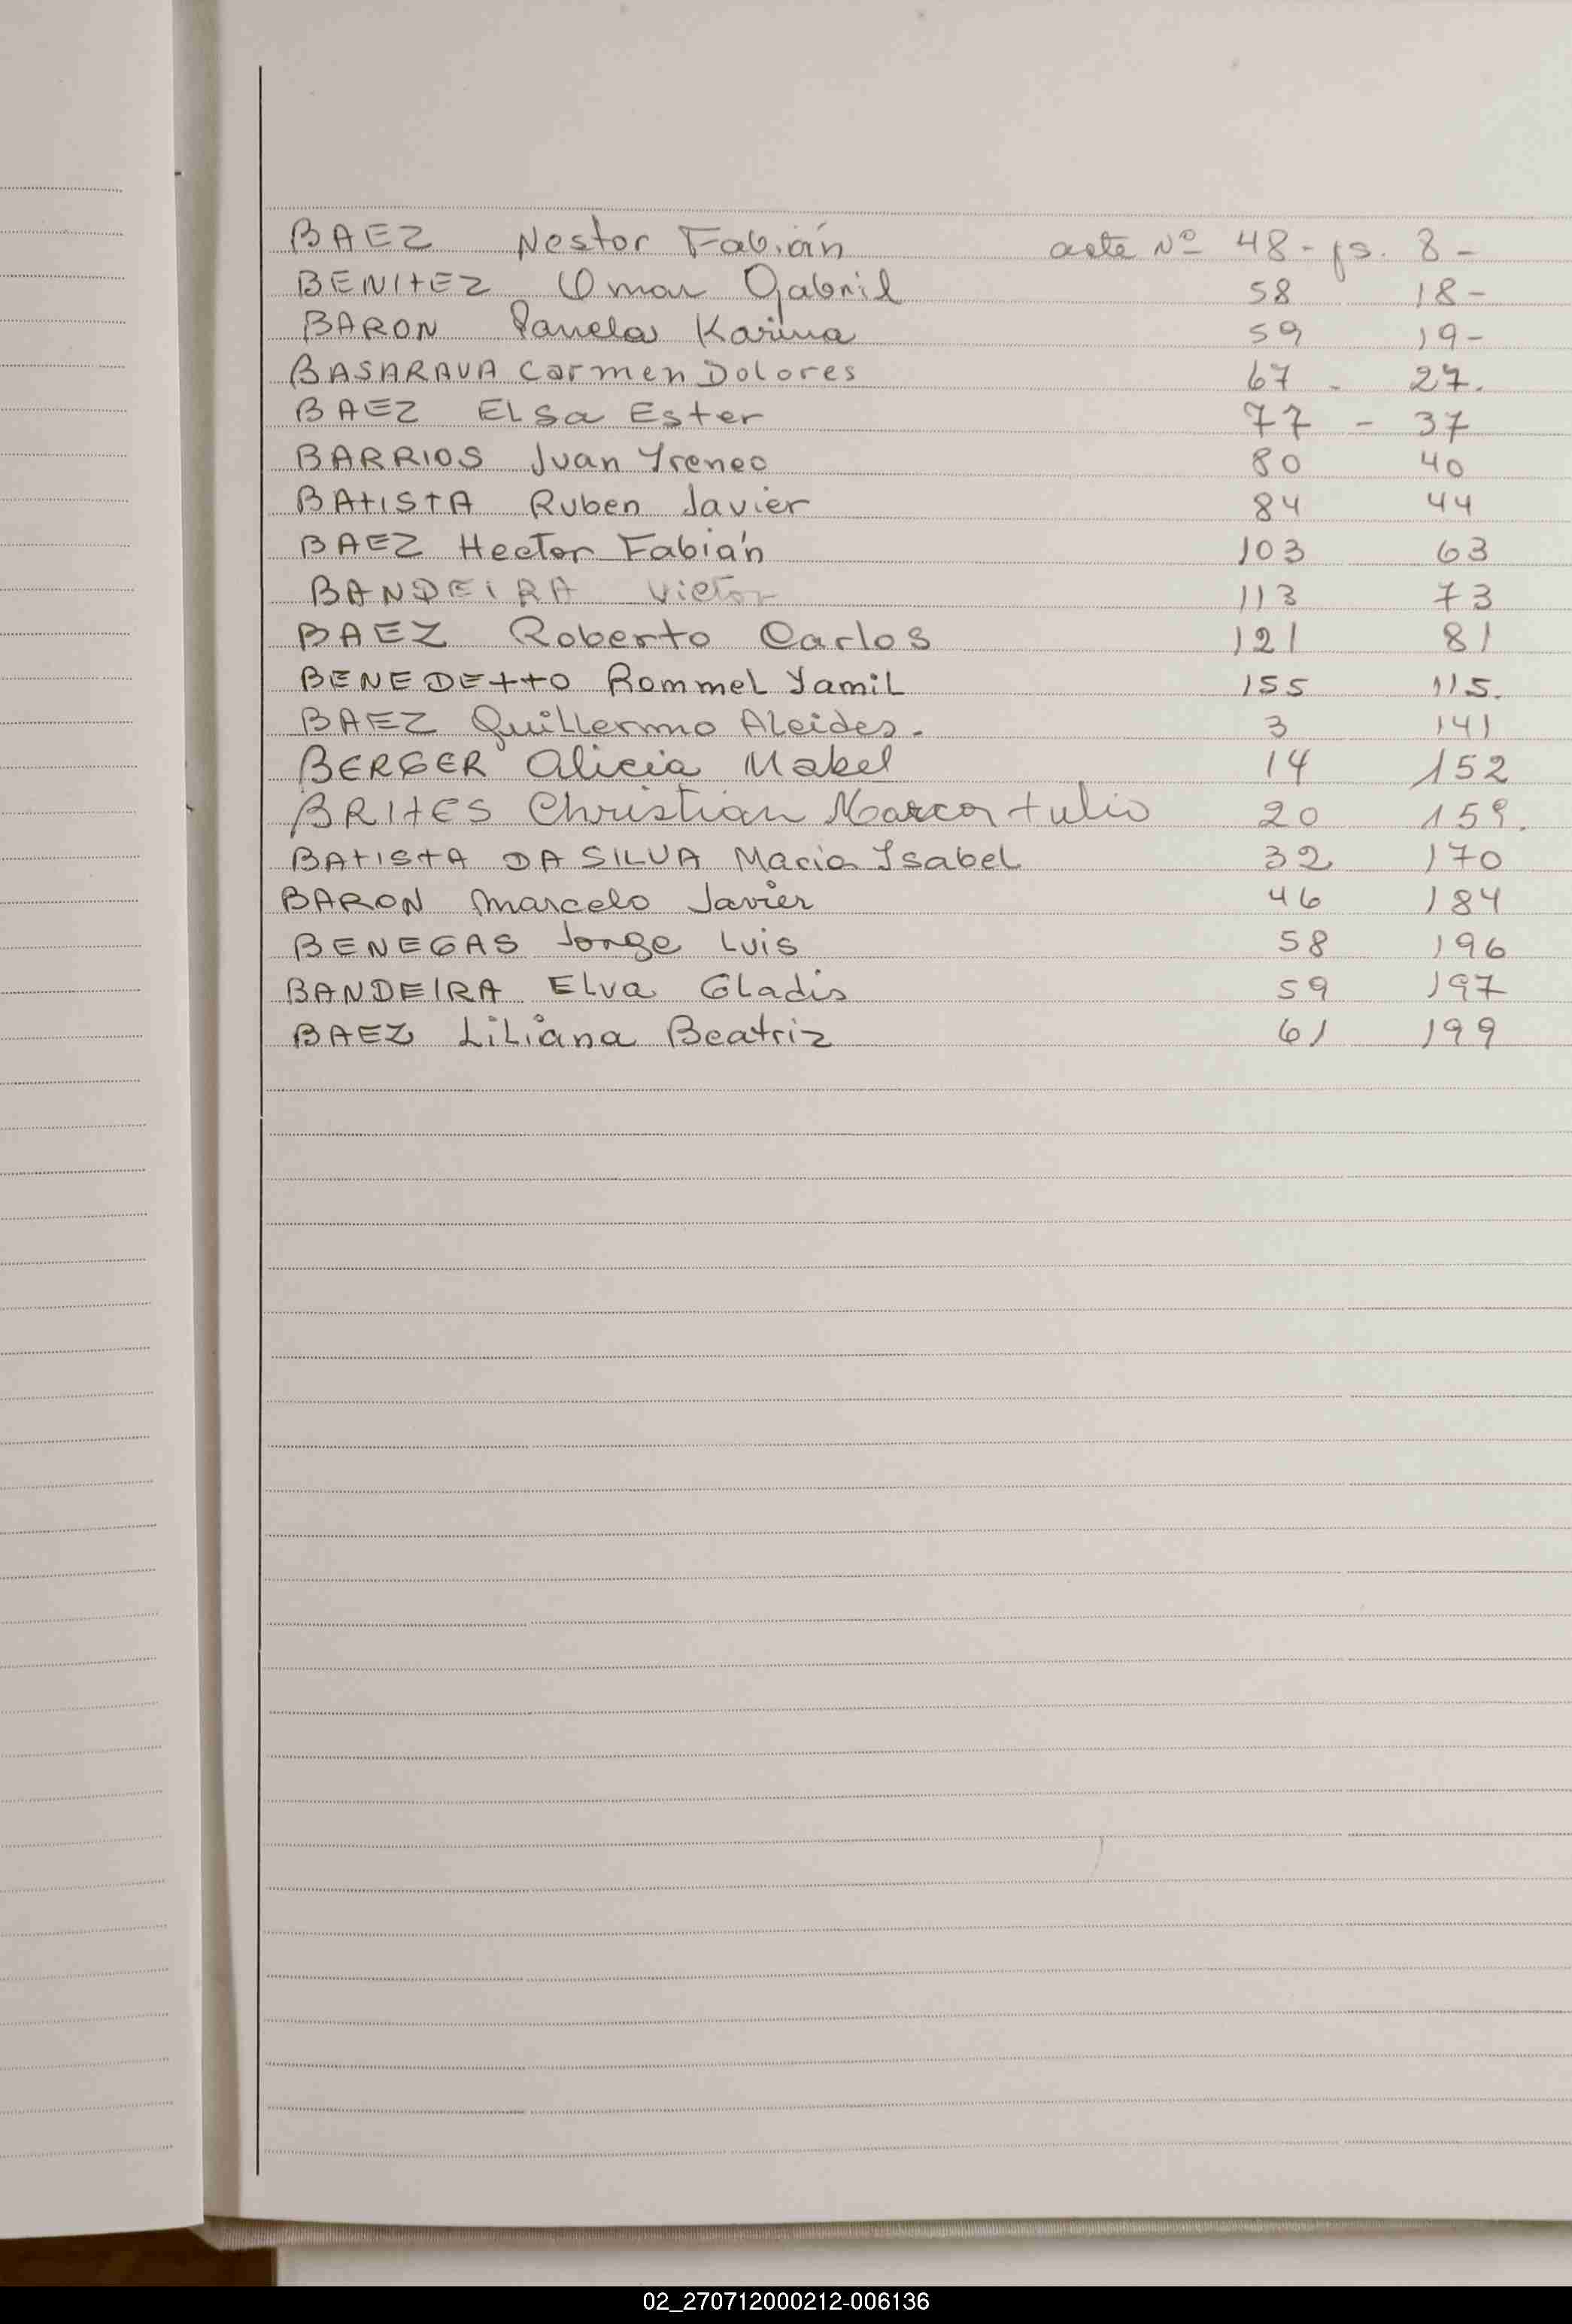 BAEZ Nestor Fabián acta Nº 48 - fs. 8 -
BENITEZ Omar Gabriel 58 18 -
BARON Pamela Karina 59 19 -
BASARAVA Carmen Dolores 67 - 27.
BAEZ ELSa Ester 77 - 37
BARRIOS Juan Yreneo 80 40
BAtISTA Ruben Javier 84 44
BAEZ Hector Fabián 103 63
BANDEIRA Victor 113 73
BAEZ Roberto Carlos 121 81
BENEDEttO Rommel Yamil 155 115.
BAEZ Guillermo Alcides. 3 141
BERGER Alicia Mabel 14 152
BRItES Christian Marco tulio 20 159.
BAtIStA DA SILVA Maria Isabel 32 170
BARON Marcelo Javier 46 184
BENEGAS Jorge Luis 58 196
BANDEIRA Elva Gladis 59 197
BAEZ Liliana Beatriz 61 199
02_270712000212-006136